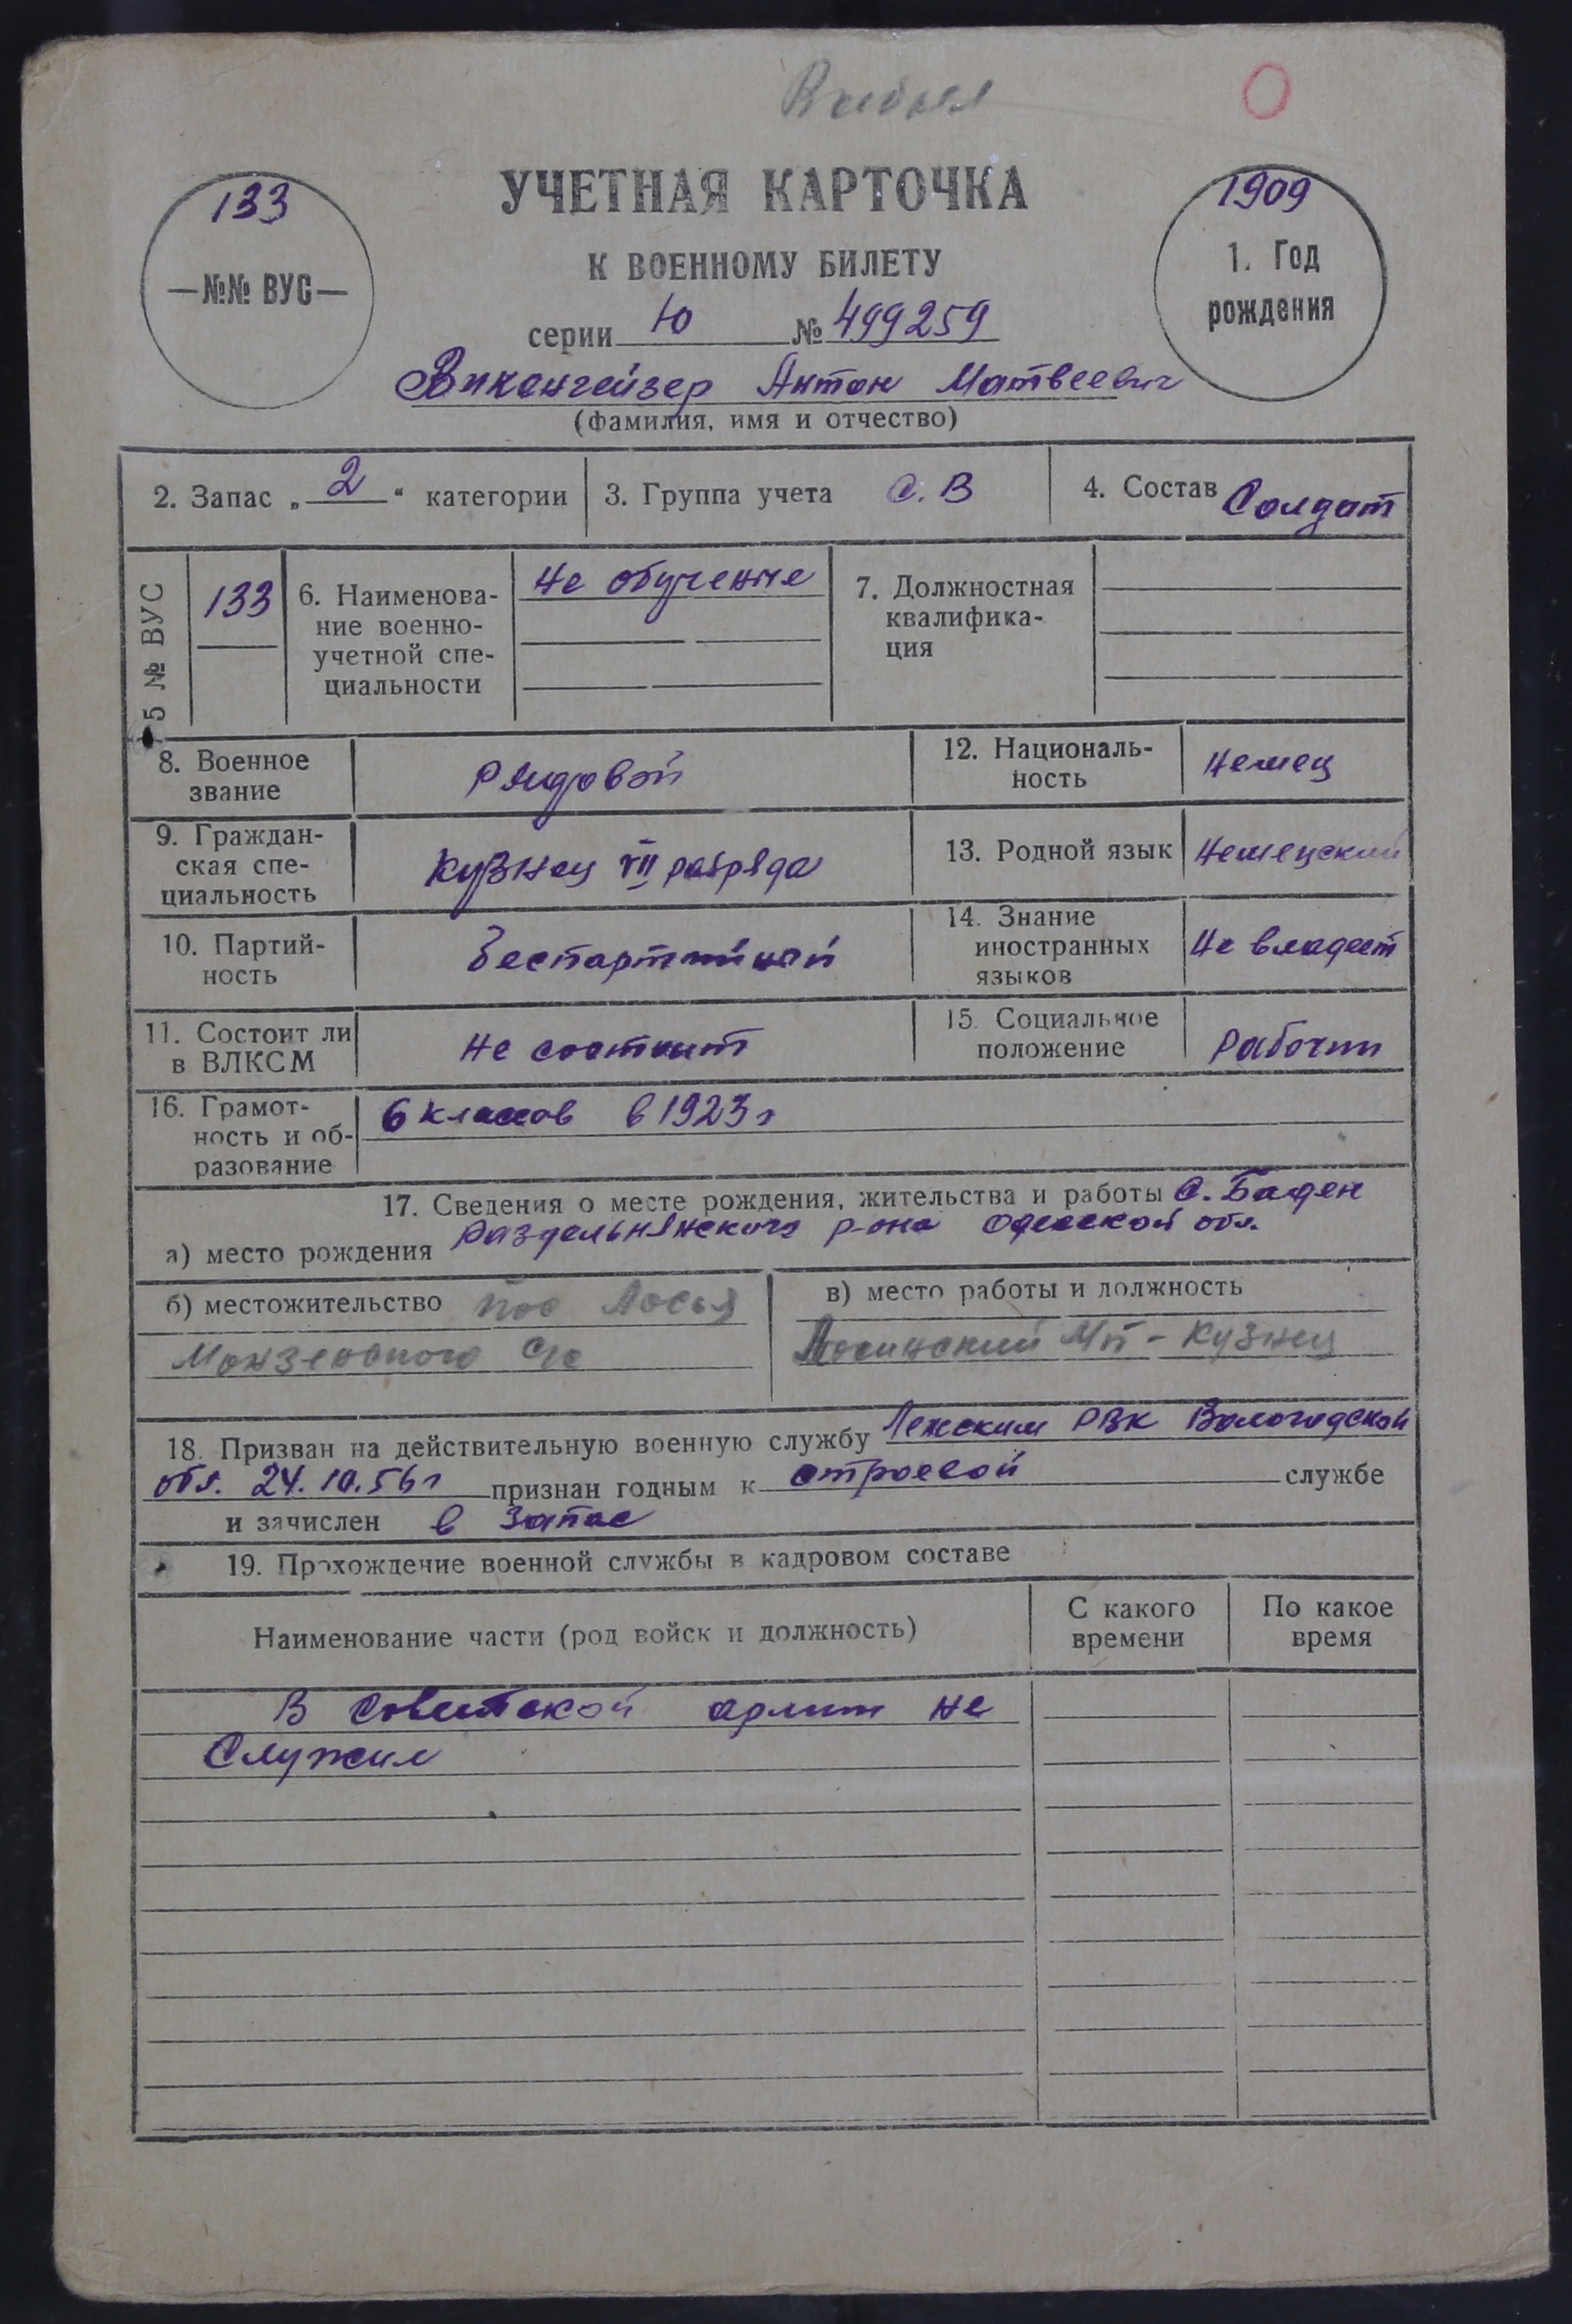 Выбыл
133
—№№ ВУС—
УЧЕТНАЯ КАРТОЧКА
К ВОЕННОМУ БИЛЕТУ
серии Ю № 499259
1909
1. Год
рождения
Антон Матвеевич
(фамилия, имя и отчество)
2. Запас „ 2 “ категории
3. Группа учета С. В
4. Состав Солдат
5 № ВУС
133
6. Наименова-
ние военно-
учетной спе-
циальности
Не обученные
7. Должностная
квалифика-
ция
8. Военное
звание
Рядовой
12. Националь-
ность
Немец
9. Граждан-
ская спе-
циальность
Кузнец VII разряда
13. Родной язык
Немецкий
10. Партий-
ность
Беспартийной
14. Знание
иностранных
языков
Не владеет
11. Состоит ли
в ВЛКСМ
Не состоит
15. Социальное
положение
Рабочий
16. Грамот-
ность и об-
разование
6 классов в 1923 г
17. Сведения о месте рождения, жительства и работы С. Баден
а) место рождения Раздельнянского р-она Одесской обл.
б) местожительство пос Лосья
Монзенского с/с
в) место работы и должность
Лосинский МП - Кузнец
18. Призван на действительную военную службу Лежским РВК Вологодской
обл. 24.10.56 г признан годным к строевой службе
и зачислен в запас
19. Прохождение военной службы в кадровом составе
Наименование части (род войск и должность)
С какого
времени
По какое
время
В Советской армии не
Служил